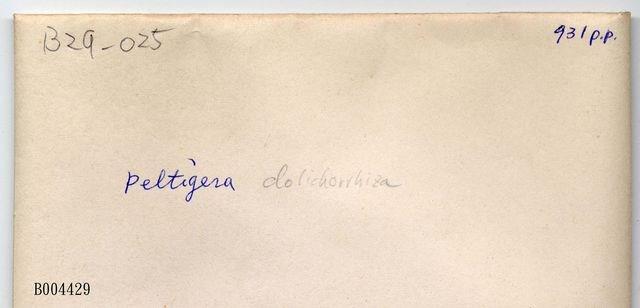 B29-025
931 p.p.
Peltigera dolichorrhiza
B004429